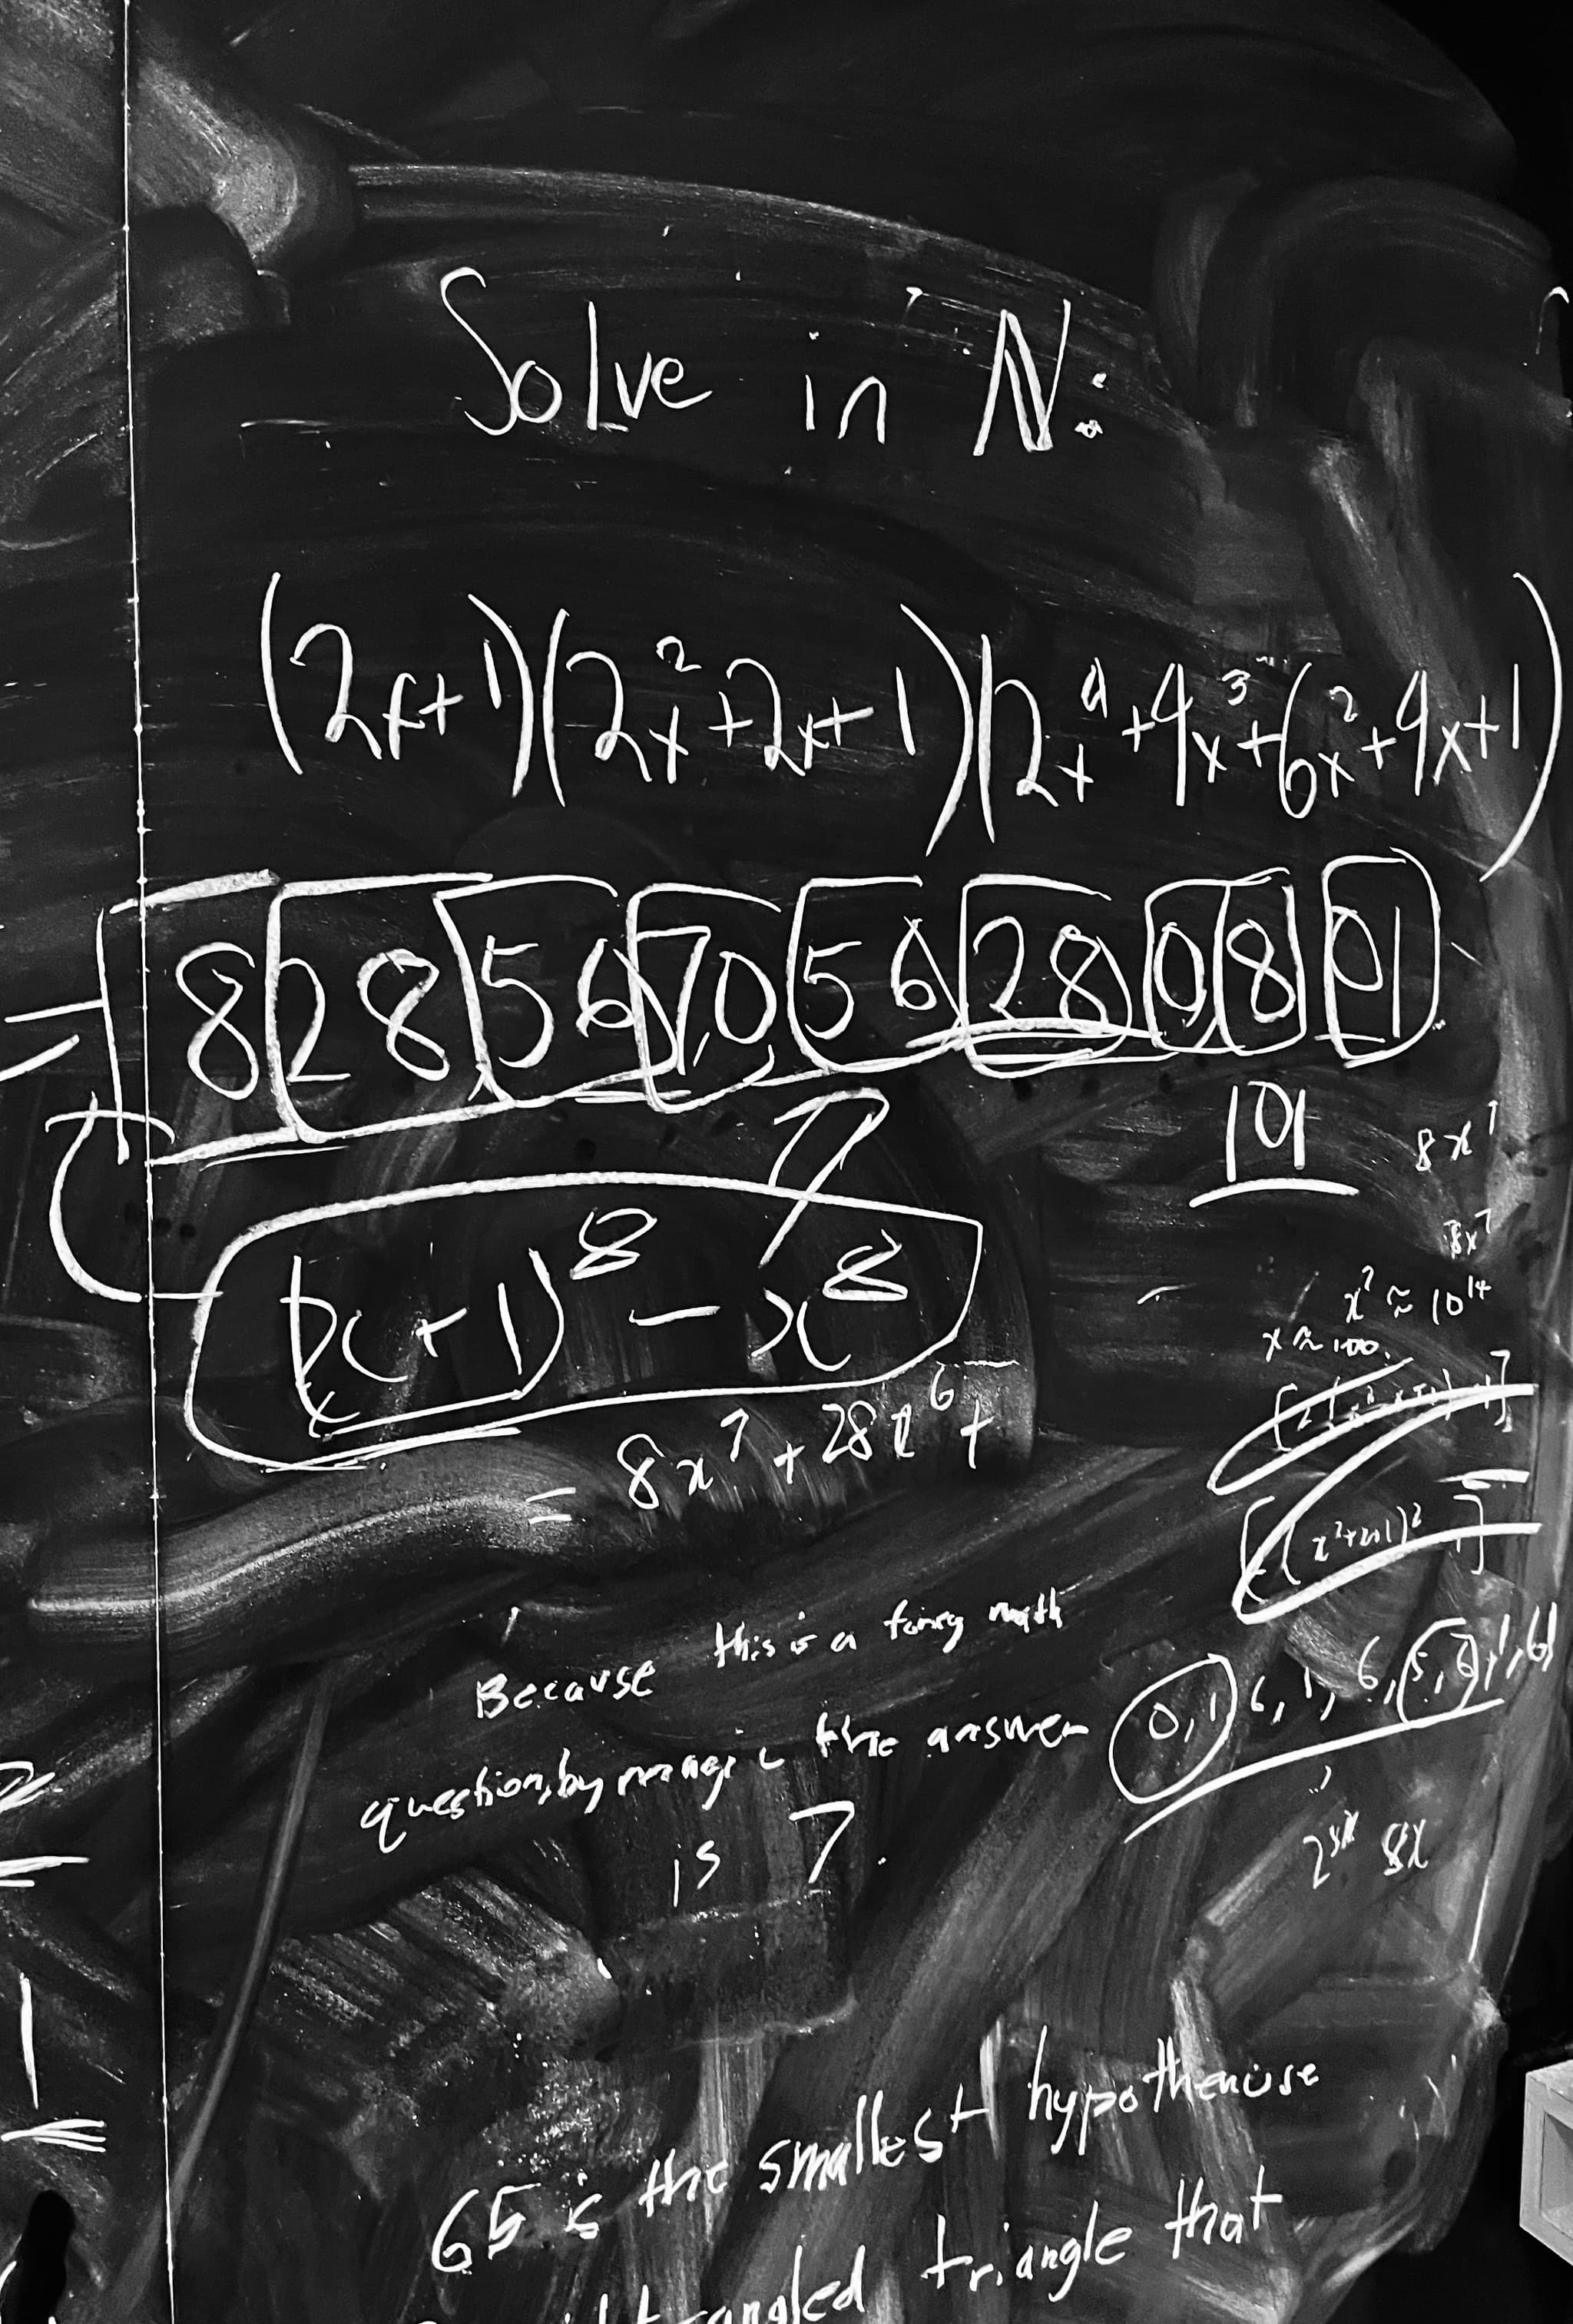 Solve in ℕ:
(2x+1)(2x²+2x+1)(2x⁴+4x³+6x²+4x+1)
= 828567056280801
101
8x⁷
(x+1)⁸ − x⁸
8x⁷
x⁷ ≈ 10¹⁴
x ≈ 100.
= 8x⁷ + 28x⁶ +
Because this is a
math
question, by magic the answer
is 7.
0, 1, 6, 1, 6, 5, 6, 1, 6
8x
65 is the smallest hypothenuse
angled triangle that